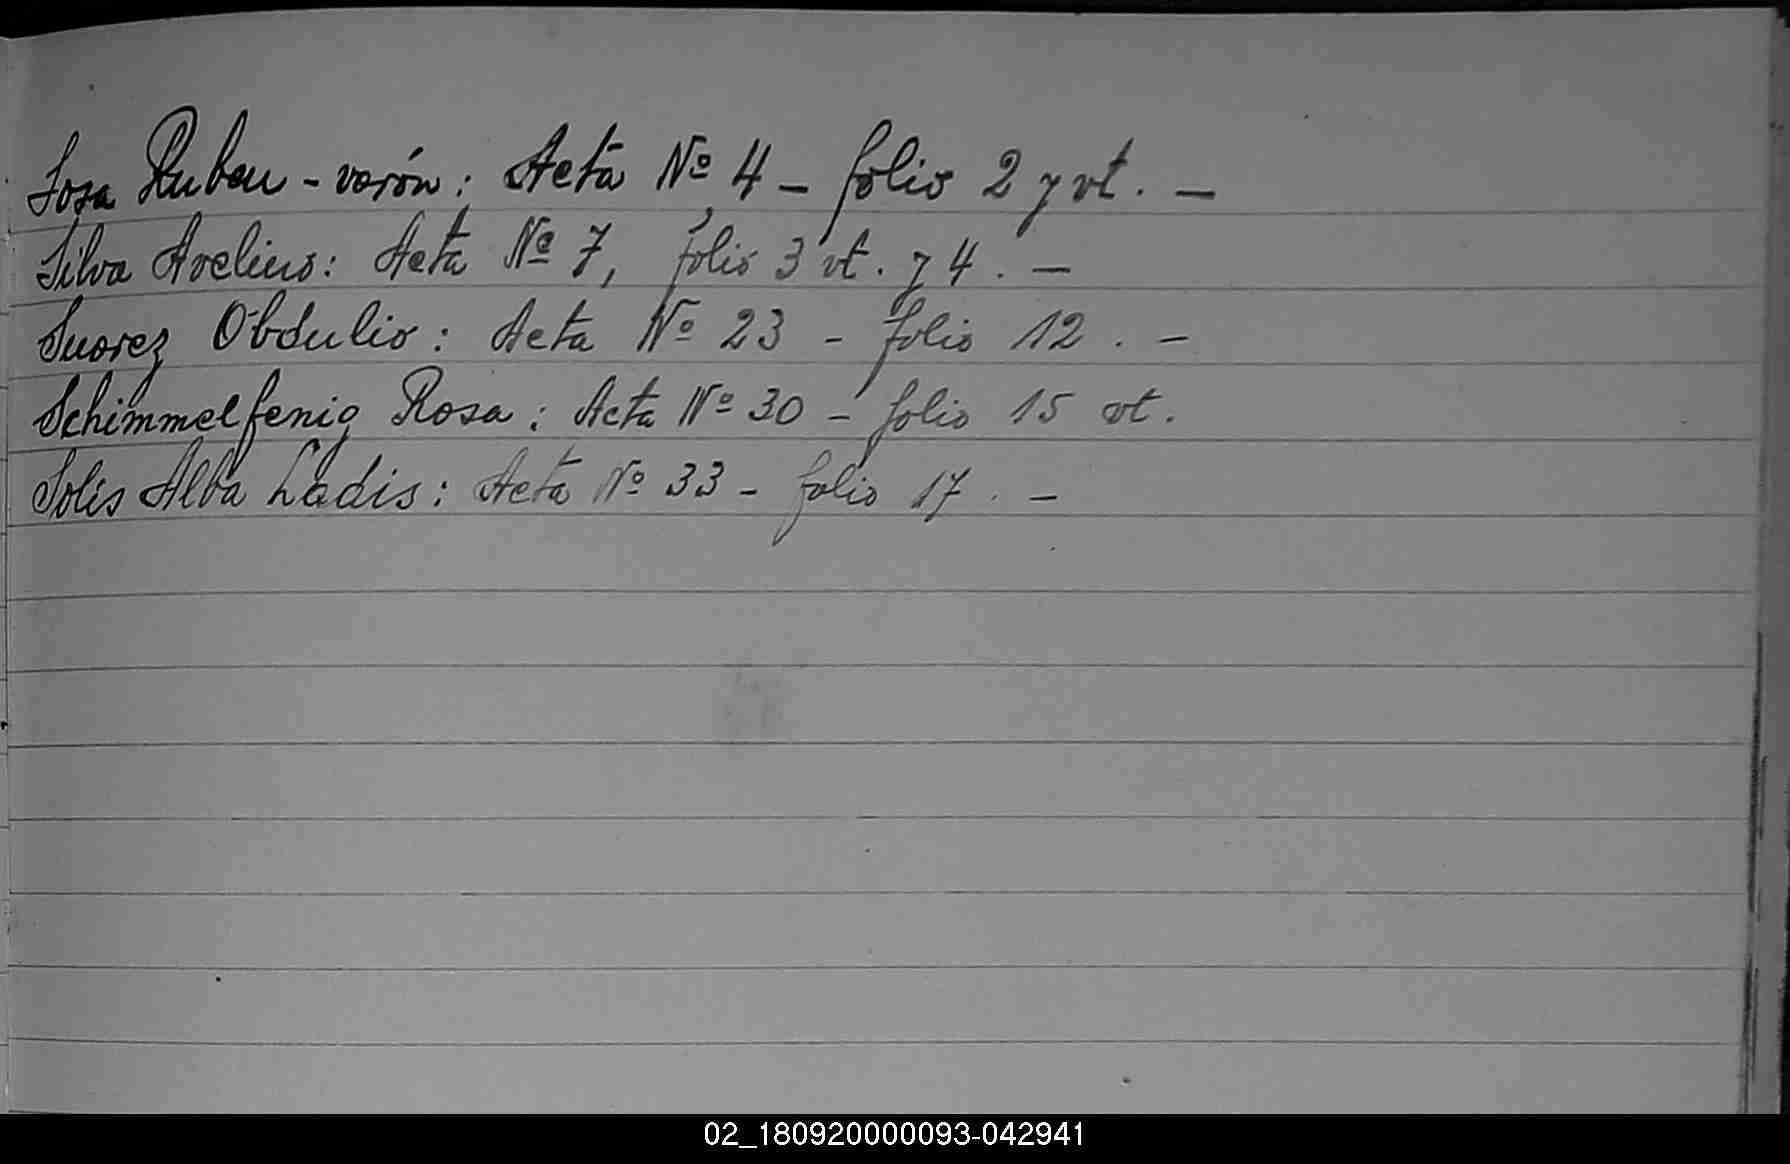 Sosa Ruben - varón: Acta Nº 4 - folio 2 y vt. -
Silva Avelino: Acta Nº 7, folio 3 vt. y 4. -
Suarez Obdulio: Acta Nº 23 - folio 12. -
Schimmelfenig Rosa: Acta Nº 30 - folio 15 vt.
Solis Alba Ladis: Acta Nº 33 - folio 17. -
02_180920000093-042941